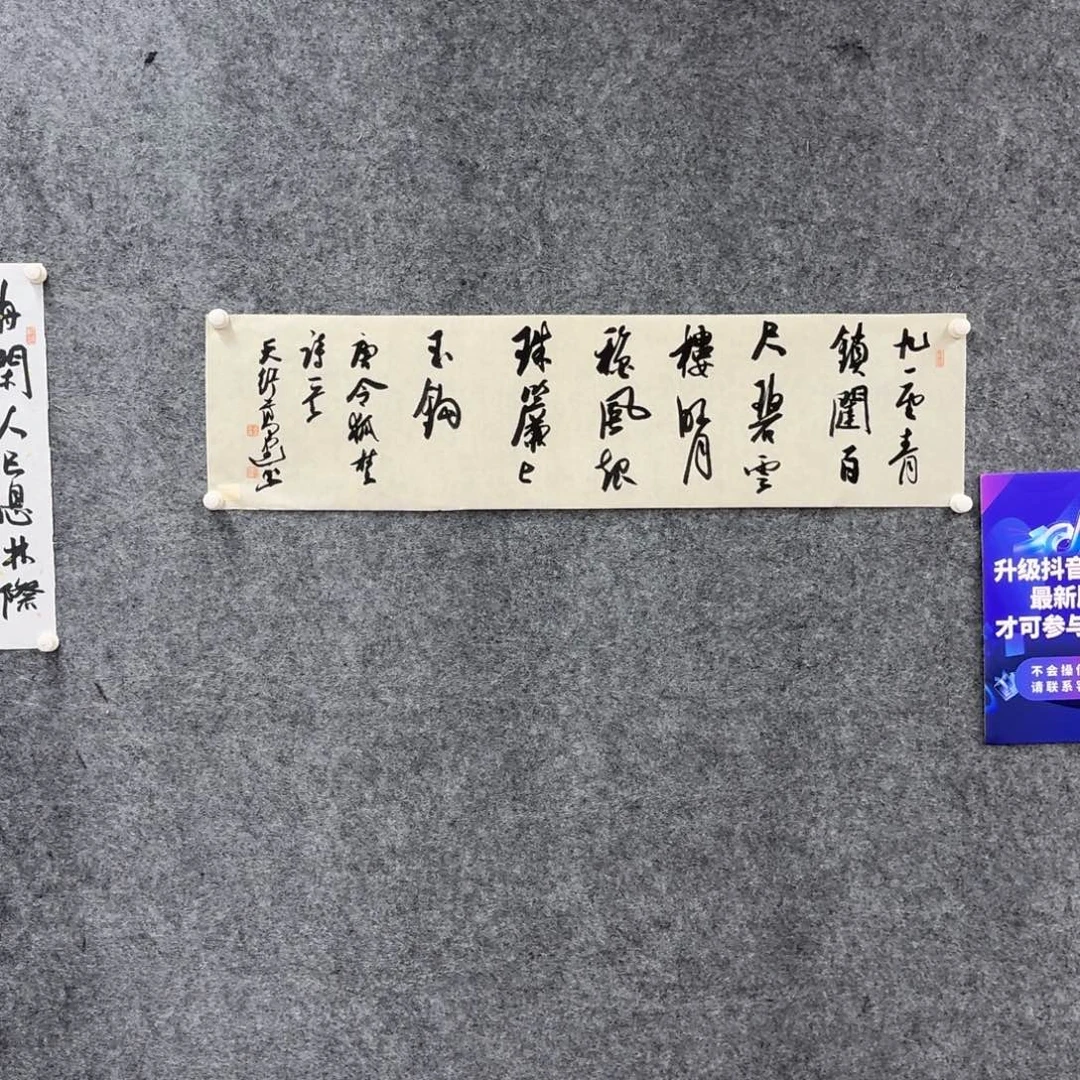 九重青
鎖闥百
尺碧雲
樓明月
穐風起
珠簾上
玉鈎
唐令狐楚
詩一首
舟閑人已息林際
升级抖音
最新
才可参与
不会操
请联系